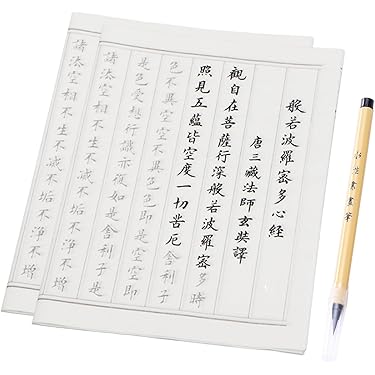 般若波羅蜜多心經
唐三藏法師玄奘譯
觀自在菩薩行深般若波羅蜜多時
照見五蘊皆空度一切苦厄舍利子
色不異空空不異色色即是空空即
是色受想行識亦復如是舍利子是
諸法空相不生不滅不垢不淨不增
諸法空相不生不滅不垢不淨不增
書畫筆